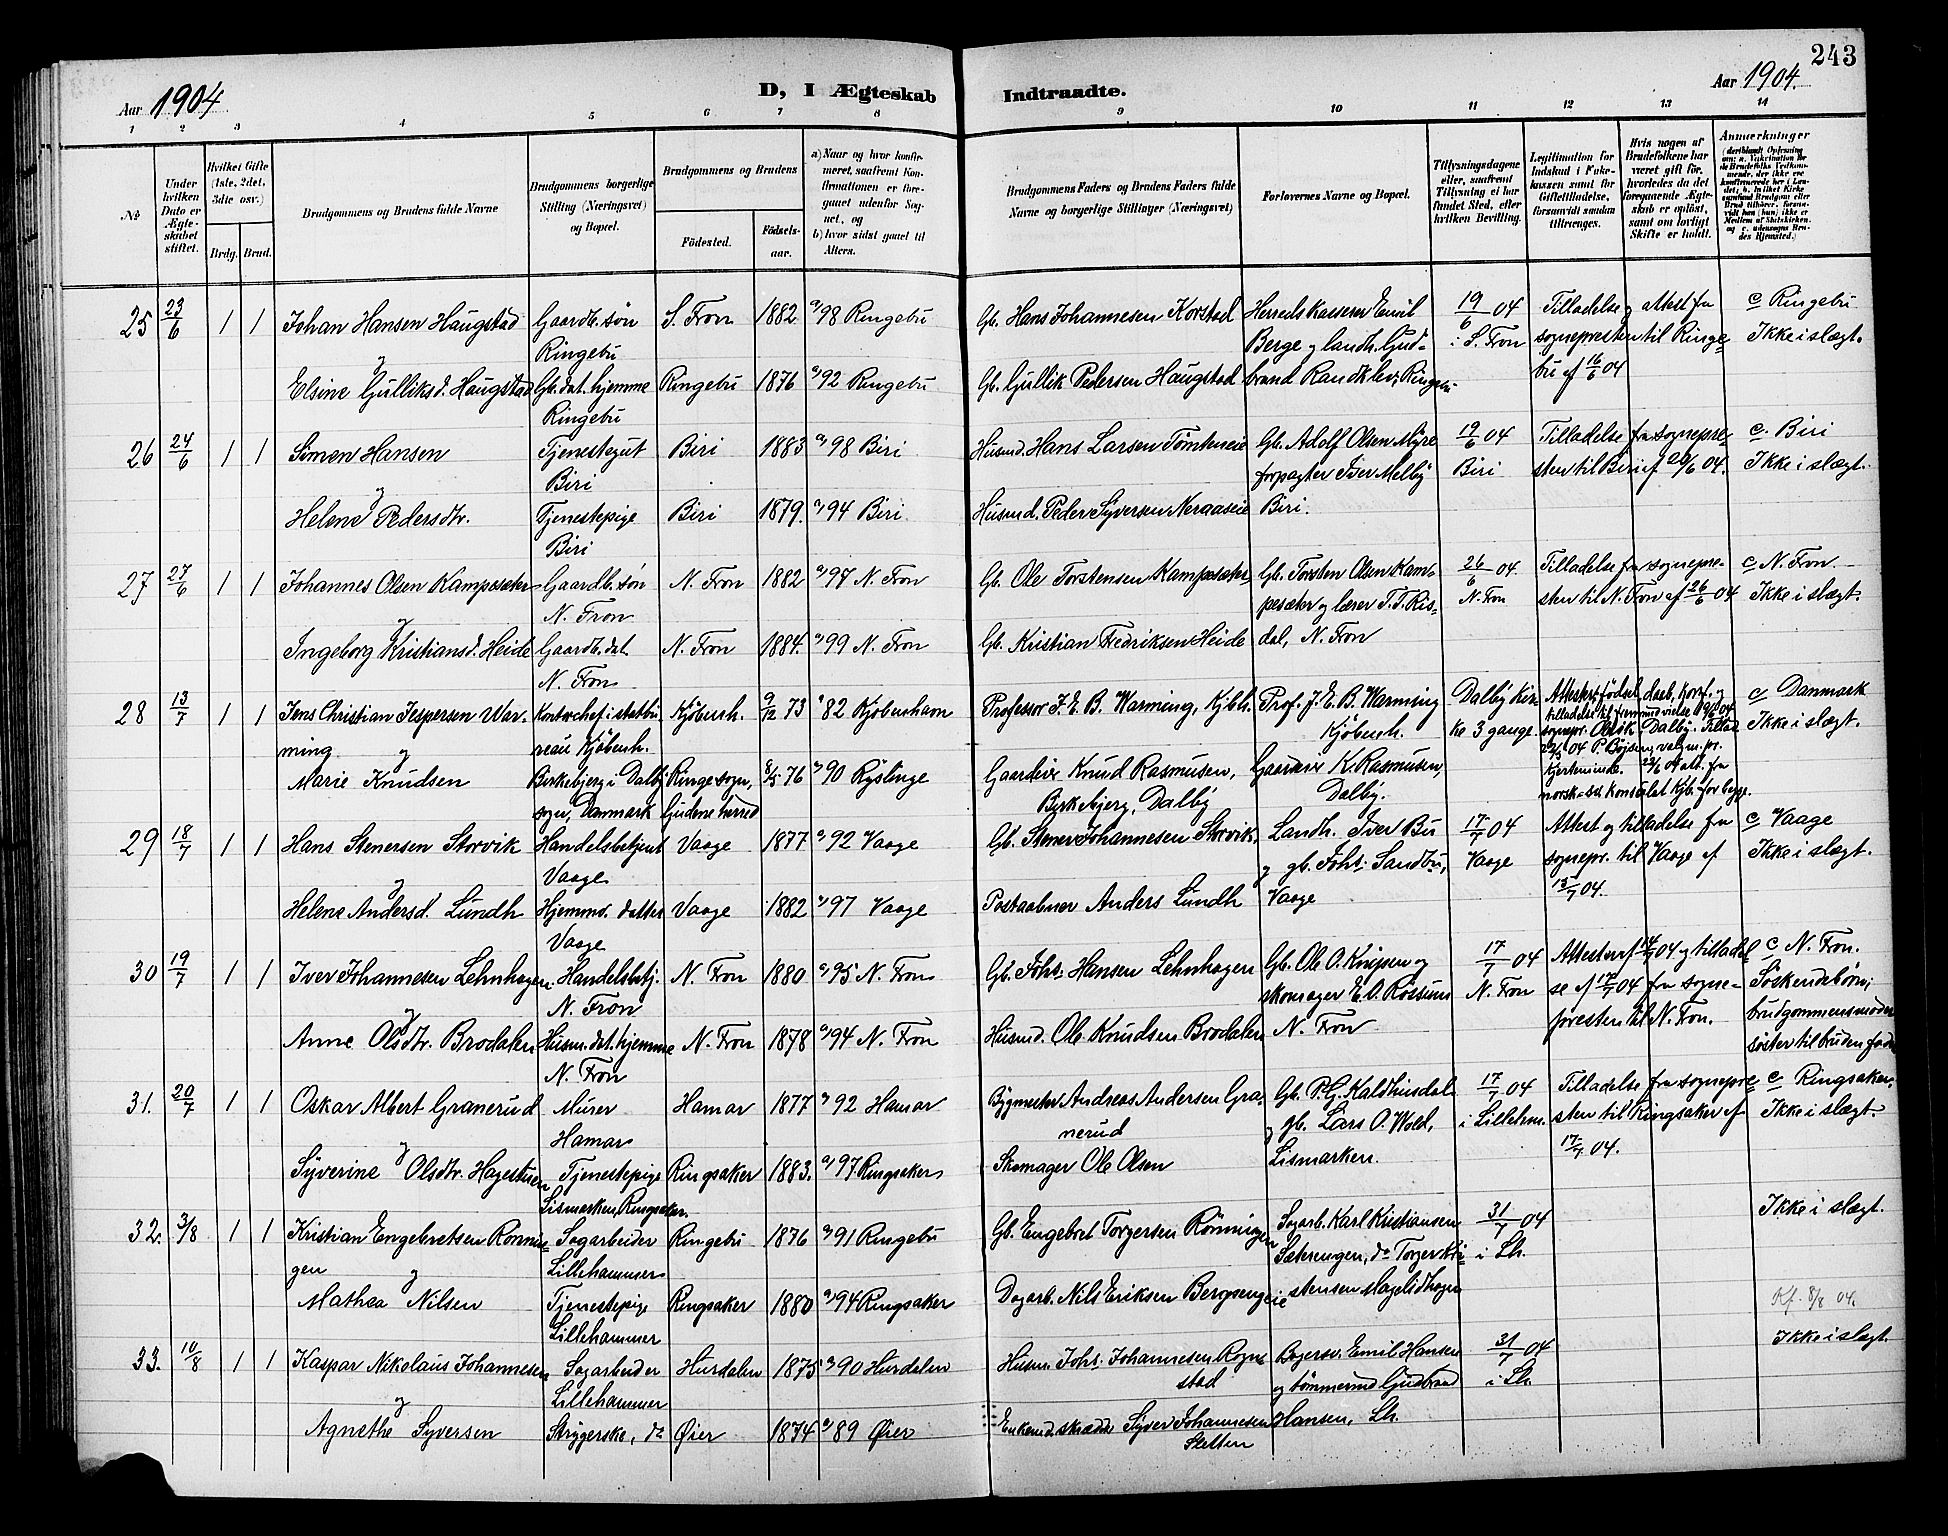 243
Aar 1904
D, I Ægteskab Indtraadte.
Aar 1904.
1 2 3 4 5 6 7 8 9 10 11 12 13 14
№
Under hvilken Dato er Ægteskabet stiftet.
Hvilket Gifte (1ste, 2det, 3die osv.)
Brdg. Brud.
Brudgommens og Brudens fulde Navne
Brudgommens borgerlige Stilling (Næringsvei) og Bopæl.
Brudgommens og Brudens
Födested. Födselsaar.
a) Naar og hvor konfirmeret, saafremt Konfirmationen er foregaaet udenfor Sognet, og
b) hvor sidst gaaet til Alters.
Brudgommens Faders og Brudens Faders fulde Navne og borgerlige Stillinger (Næringsvei)
Forlovernes Navne og Bopæl.
Tillysningsdagene eller, saafremt Tillysning ei har fundet Sted, efter hvilken Bevilling.
Legitimation for Indskud i Enkekassen samt for Giftetilladelse, forsaavidt saadan tiltrænges.
Hvis nogen af Brudefolkene har været gift før, hvorledes da det foregaaende Ægteskab er opløst, samt om lovligt Skifte er holdt.
Anmærkninger
25 23/6 1 1 Johan Hansen Haugstad Gaardb. søn Ringebu S. Fron 1882 98 Ringebu Gb. Hans Johannesen Korstad Herredskasserer Emil Berge og landh. Gudbrand Randklev, Ringebu 19/6 04 i S. Fron Tilladelse og attest fra sognepresten til Ringebu af 16/6 04 c Ringebu Ikke i slægt.
og
Elsine Gulliksd. Haugstad Gb. dat. hjemme Ringebu Ringebu 1876 92 Ringebu Gb. Gullik Pedersen Haugstad
26 24/6 1 1 Simen Hansen Tjenestegut Biri Biri 1883 98 Biri Husmd. Hans Larsen Tømteneie Gb. Adolf Olsen Myre forpagter Iver Melby Biri. 19/6 04 Biri Tilladelse fra sognepresten til Biri af 20/6 04. c. Biri Ikke i slægt.
og
Helene Pedersdtr. Tjenestepige Biri Biri 1879. 94 Biri. Husmd. Peder Syversen Neraaseie
27 27/6 1 1 Johannes Olsen Kampesæter Gaardb. søn N. Fron N. Fron 1882 97 N. Fron Gb. Ole Torstensen Kampesæter Gb. Torsten Olsen Kampesæter og lærer T. T. Risdal, N. Fron 26/6 04. N. Fron Tilladelse fra sognepresten til N. Fron af 26/6 04 c N. Fron. Ikke i slægt.
og
Ingeborg Kristiansd. Heide Gaardb. dat. N. Fron N. Fron 1884. 99 N. Fron Gb. Kristian Fredriksen Heide
28 13/7 1 1 Jens Christian Jespersen Warming Kontorchef i statbureau Kjöbenh. Kjöbenh. 9/12 73 82 Kjöbenhavn Professor J. E. B. Warming, Kjbh. Prof. J. E. B. Warming Kjöbenh. Dalby kirke 3 gange. Attester: födsel, daab, konf. og tilladelse til Dalby. c Danmark Ikke i slægt.
og
Marie Knudsen Birkebjerg i Dalby sogn, Danmark Ringe sogn, Gudene herred 76 90 Ryslinge Gaardeier Knud Rasmusen, Birkebjerg, Dalby Gaardeier K. Rasmusen, Dalby.
29 18/7 1 1 Hans Stenersen Storvik Handelsbetjent Vaage Vaage 1877 92 Vaage Gb. Stener Johannesen Storvik. Landh. Iver Bu og gb. Johs. Sandbu, Vaage 17/7 04 Vaage Attest og tilladelse fra sognepr. til Vaage af 15/7 04. c Vaage Ikke i slægt.
og
Helene Andersd. Lundh Hjemmev. datter Vaage Vaage 1882 97 Vaage Postaabner Anders Lundh
30 19/7 1 1 Iver Johannesen Lehnhagen Handelsbetj. N. Fron N. Fron 1880 95 N. Fron Gb. Johs. Hansen Lehnhagen Gb. Ole O. Knipen og skomager E. O. Røssum N. Fron 17/7 04 N. Fron Attester af 14/7 04 og tilladelse af 17/7 04 fra sognepresten til N. Fron. c N. Fron. Söskendebörn; brudgommens moder söster til brudens fader
og
Anne Olsdtr. Brodalen Husm. dat. hjemme N. Fron N. Fron 1878 94 N. Fron Husmd. Ole Knudsen Brodalen
31. 20/7 1 1 Oskar Albert Granerud Murer Hamar Hamar 1877 92 Hamar Bygmester Andreas Andersen Granerud Gb. P. G. Kaldhusdal og gb. Lars O. Wold, Lismarken. 17/7 04 i Lilleham. Tilladelse fra sognepresten til Ringsaker af 17/7 04. c Ringsaker. Ikke i slægt.
og
Syverine Olsdtr. Hagestuen Tjenestepige Lismarken, Ringsaker. Ringsaker 1883. 97 Ringsaker Skomager Ole Olsen
32. 3/8 1 1 Kristian Engebretsen Rønningen Sagarbeider Lillehammer Ringebu 1876 91 Ringebu Gb. Engebret Torgersen Rønningen Sagarb. Karl Kristiansen Sæterengen, do Torger Kristensen Magelidhagen 31/7 04 i Lh. Ikke i slægt.
og
Mathea Nilsen Tjenestepige Lillehammer Ringsaker 1880 94 Ringsaker Dagarb. Nils Eriksen Bergsengeie Kf. 8/8 04.
33. 10/8 1 1 Kaspar Nikolaus Johannesen Sagarbeider Lillehammer Hurdalen 1875 90 Hurdalen Husm. Johs. Johannesen Rognstad Bagersv. Emil Hansen og tømmermd Gudbrand Hansen, Lh. 31/7 04 i Lh. Ikke i slægt.
og
Agnethe Syversen Strygerske, do Øier 1874 89 Øier Enkemd. skrædd. Syver Johannesen Sletten